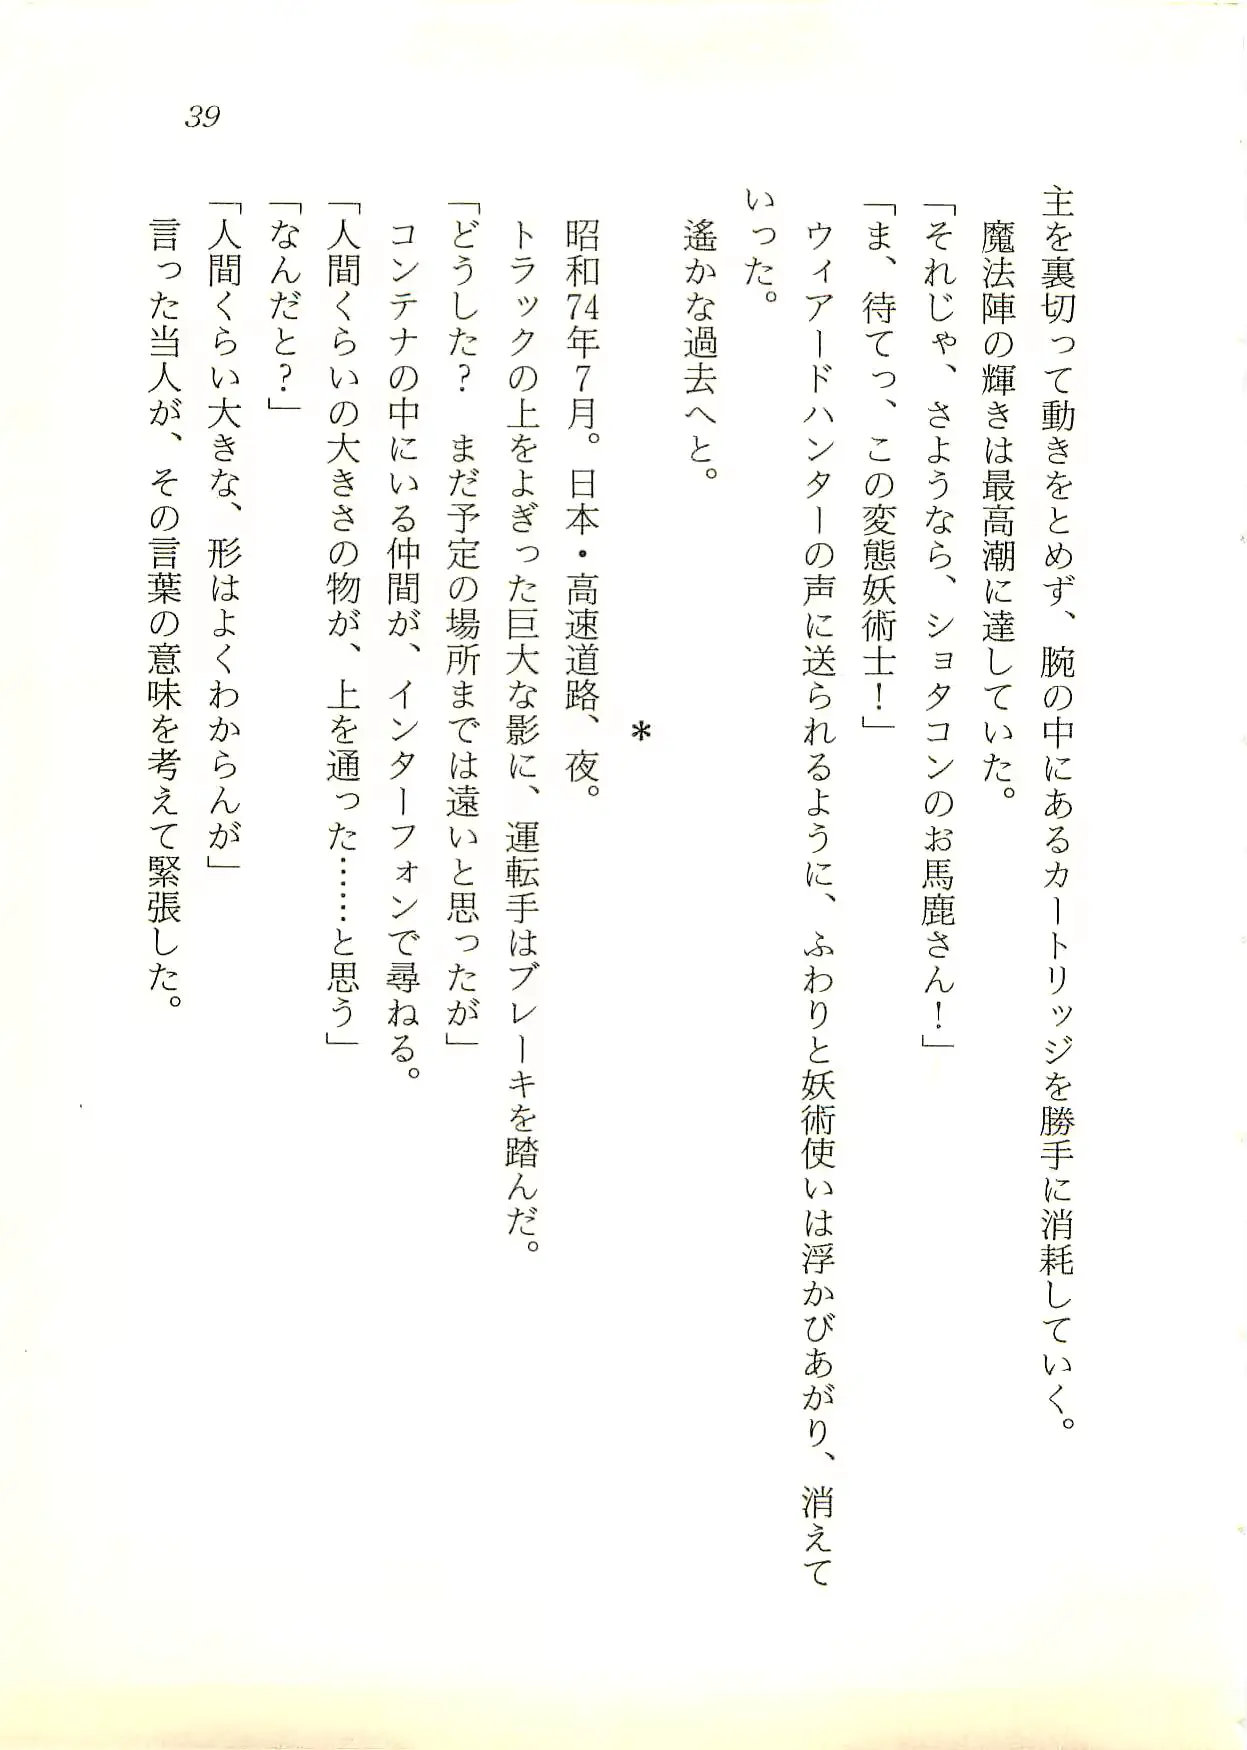 39
主を裏切って動きをとめず、腕の中にあるカートリッジを勝手に消耗していく。
魔法陣の輝きは最高潮に達していた。
「それじゃ、さようなら、ショタコンのお馬鹿さん！」
「ま、待てっ、この変態妖術士！」
ウィアードハンターの声に送られるように、ふわりと妖術使いは浮かびあがり、消えて
いった。
遙かな過去へと。
＊
昭和74年7月。日本・高速道路、夜。
トラックの上をよぎった巨大な影に、運転手はブレーキを踏んだ。
「どうした？　まだ予定の場所までは遠いと思ったが」
コンテナの中にいる仲間が、インターフォンで尋ねる。
「人間くらいの大きさの物が、上を通った……と思う」
「なんだと？」
「人間くらい大きな、形はよくわからんが」
言った当人が、その言葉の意味を考えて緊張した。